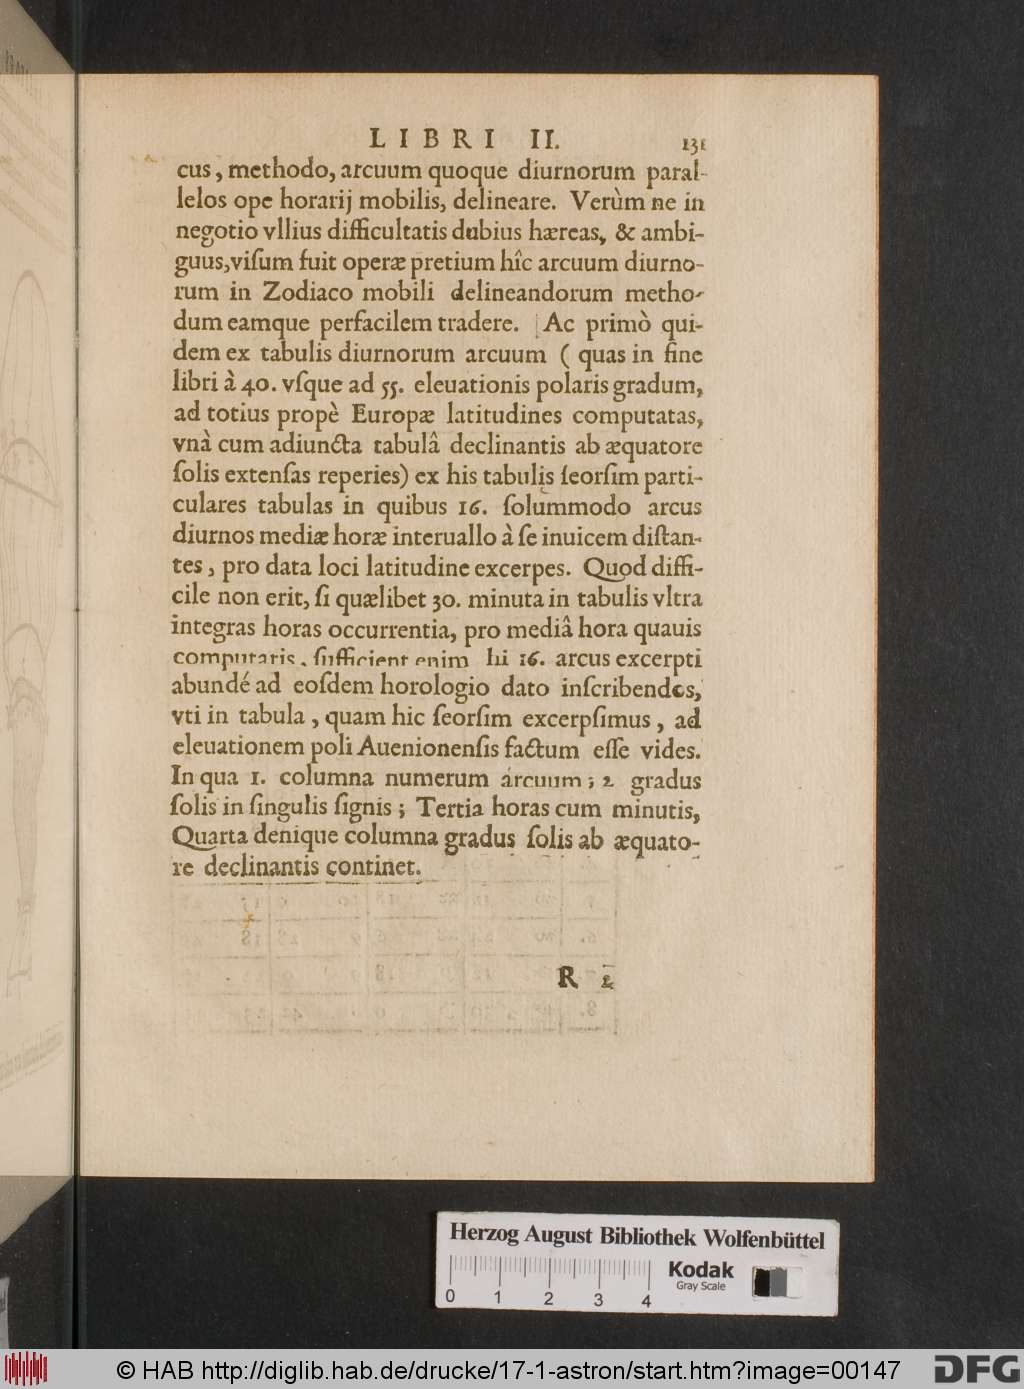 LIBRI II. 131
cus, methodo, arcuum quoque diurnorum paral-
lelos ope horarij mobilis, delineare. Verùm ne in
negotio vllius difficultatis dubius hæreas, & ambi-
guus, viſum fuit operæ pretium hîc arcuum diurno-
rum in Zodiaco mobili delineandorum metho-
dum eamque perfacilem tradere. Ac primò qui-
dem ex tabulis diurnorum arcuum ( quas in fine
libri à 40. vſque ad 55. eleuationis polaris gradum,
ad totius propè Europæ latitudines computatas,
vnà cum adiuncta tabulâ declinantis ab æquatore
ſolis extenſas reperies) ex his tabulis ſeorſim parti-
culares tabulas in quibus 16. ſolummodo arcus
diurnos mediæ horæ interuallo à ſe inuicem diſtan-
tes, pro data loci latitudine excerpes. Quod diffi-
cile non erit, ſi quælibet 30. minuta in tabulis vltra
integras horas occurrentia, pro mediâ hora quauis
computaris, ſufficient enim hi 16. arcus excerpti
abundé ad eoſdem horologio dato inſcribendos,
vti in tabula, quam hic ſeorſim excerpſimus, ad
eleuationem poli Auenionenſis factum eſſe vides.
In qua 1. columna numerum arcuum; 2 gradus
ſolis in ſingulis ſignis; Tertia horas cum minutis,
Quarta denique columna gradus ſolis ab æquato-
re declinantis continet.
R 2
Herzog August Bibliothek Wolfenbüttel
Kodak
Gray Scale
0 1 2 3 4
© HAB http://diglib.hab.de/drucke/17-1-astron/start.htm?image=00147
DFG